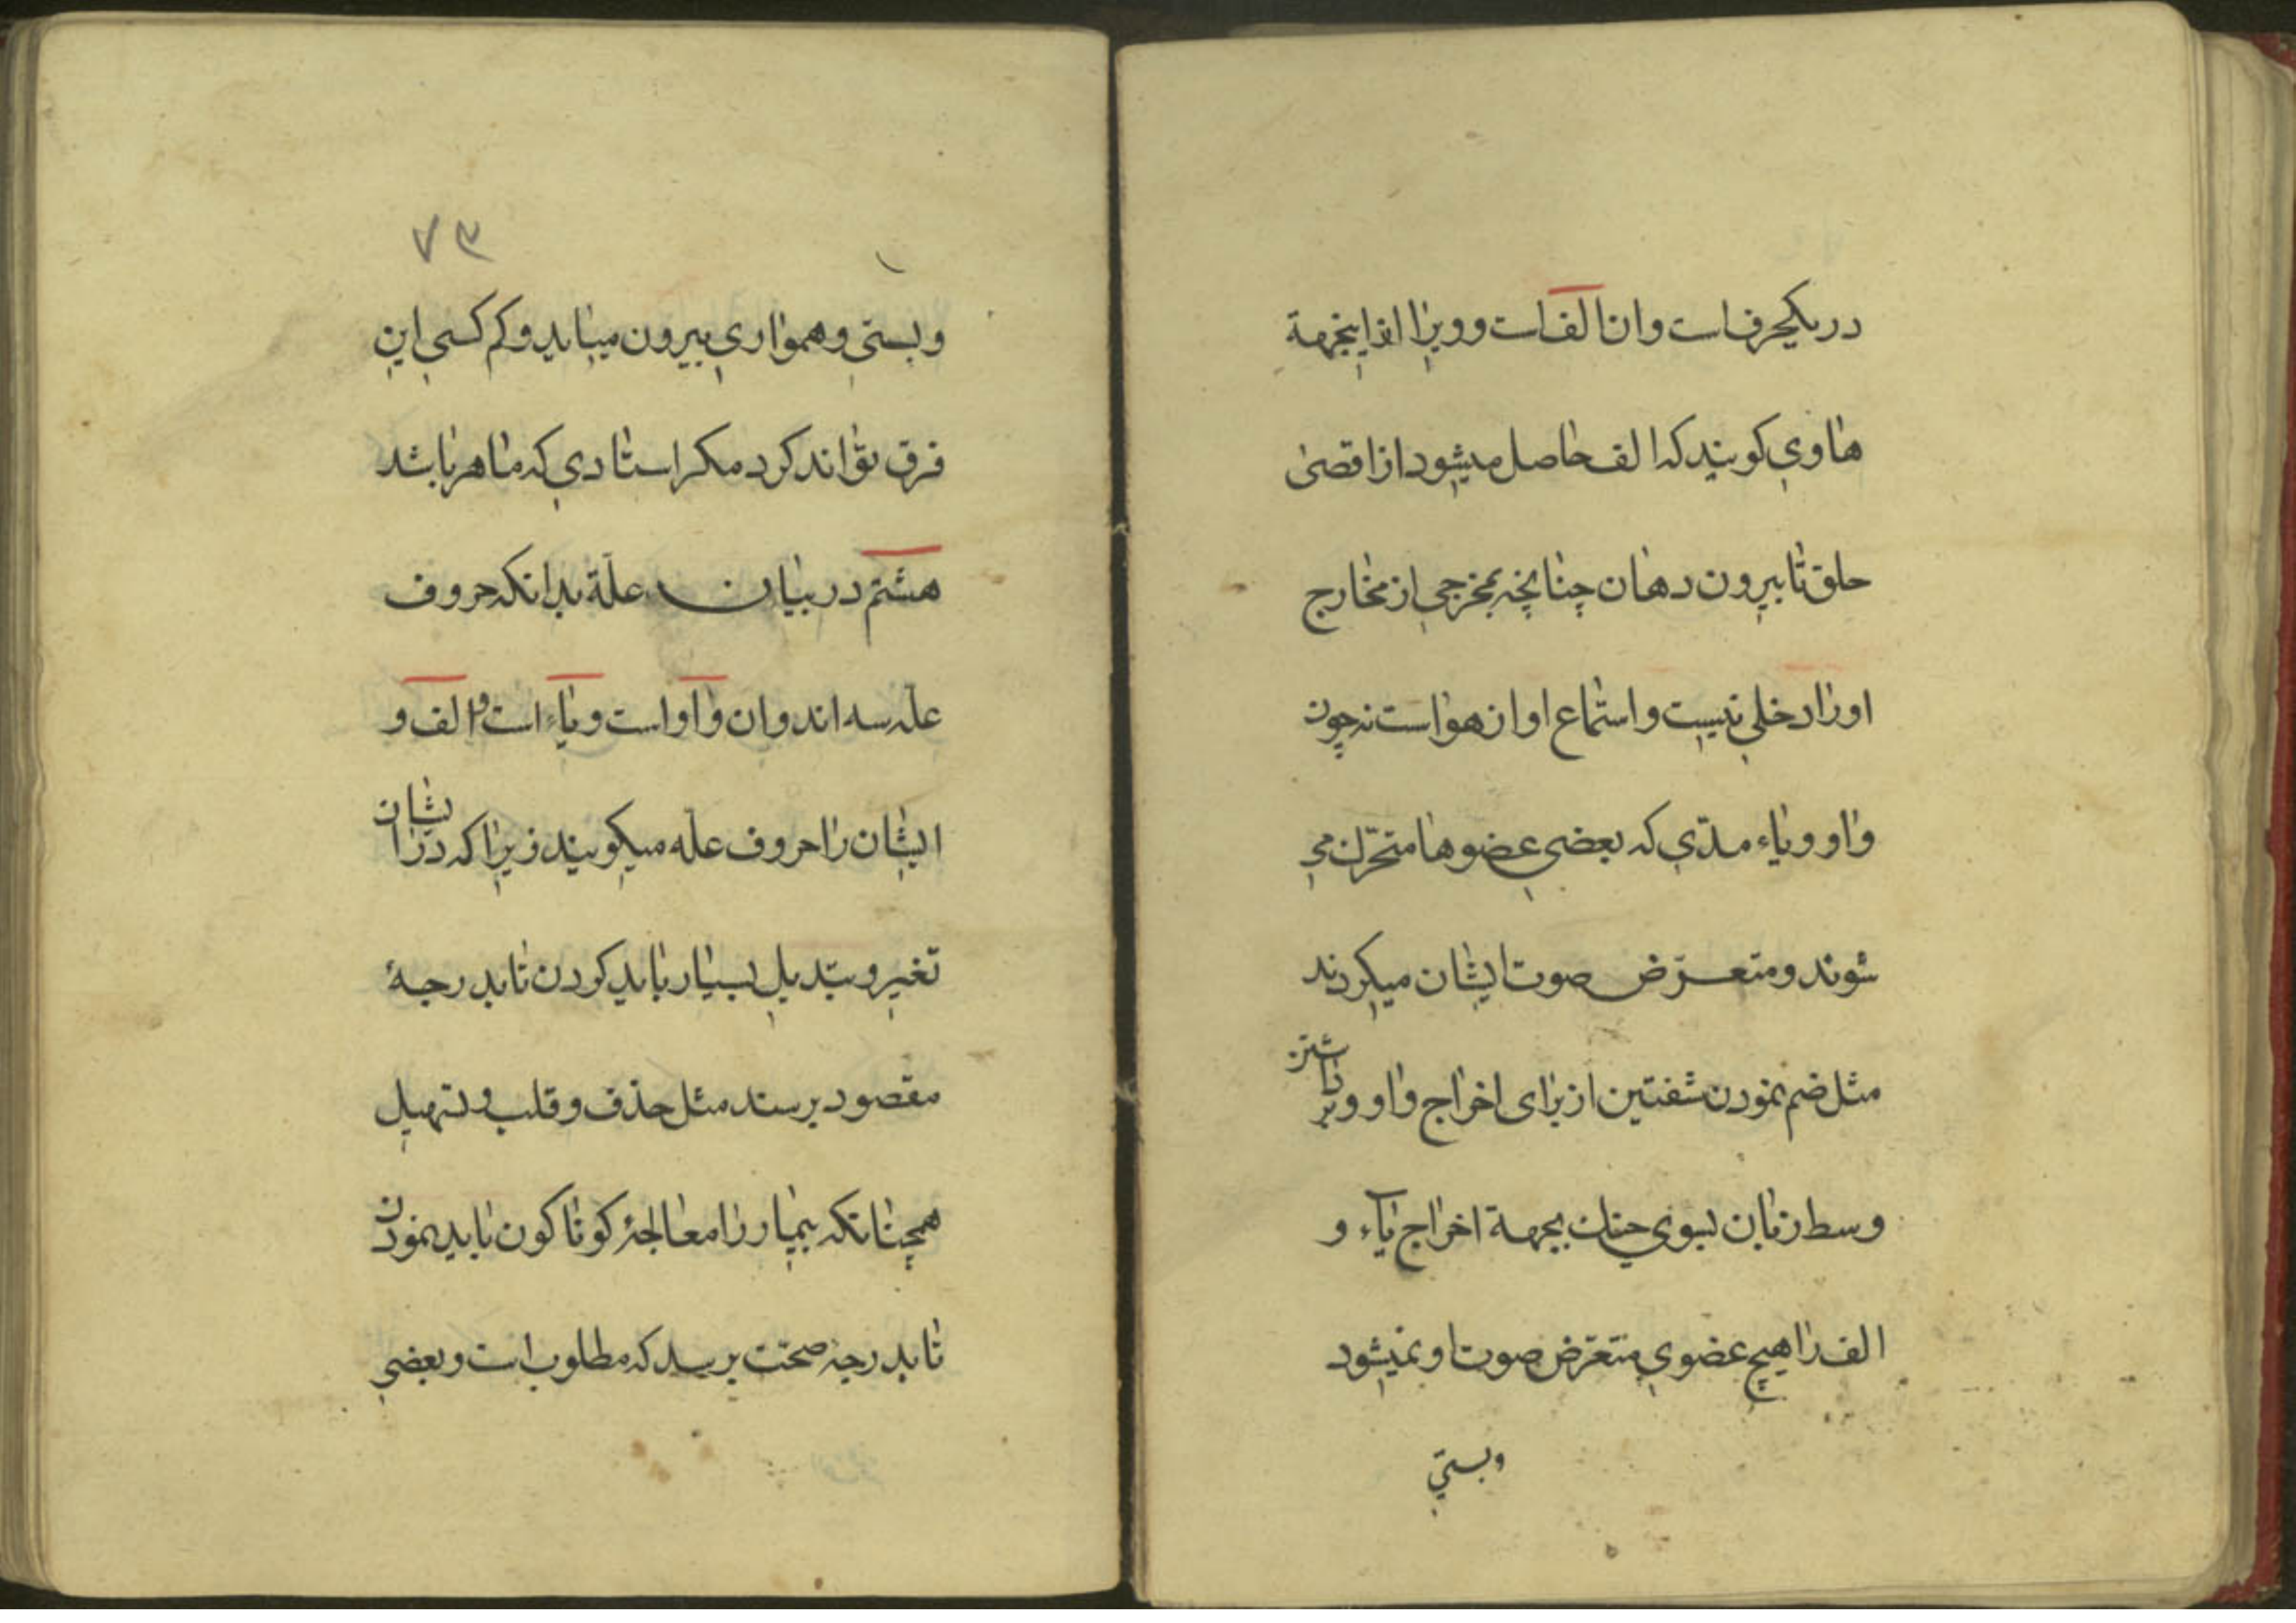 در یکحرف است و ان الف است و ویرا ازاینجهة
هاوی کویند که الف حاصل میشود از اقصی
حلق تا بیرون دهان چنانچه بمخرجی از مخارج
اورا دخلی نیست و استماع او از هواست نه چون
واو و یاء مدّی که بعضی عضوها متحرّک می
شوند و متعرّض صوت ایشان میکردند
مثل ضم نمودن شفتین از برای اخراج واو و برداشتن
وسط زبان بسوی حنک بجهة اخراج یآء و
الف را هیچ عضوی متعرّض صوت او نمیشود
وبستی
۷۳
وبستی و همواری بیرون میاید و کم کسی این
فرق تواند کرد مکر استادی که ماهر باشد
هشتم در بیان علّة بدانکه حروف
علّه سه اند و ان واو است و یاء است و الف و
ایشان را حروف علّه میکویند زیرا که درایشان
تغیر و تبدیل بسیار باید کردن تا بدرجهٔ
مقصود برسند مثل حذف و قلب و تسهیل
همچنانکه بیمار را معالجهٔ کوناکون باید نمودن
تا بدرجهٔ صحّت برسد که مطلوب است و بعضی